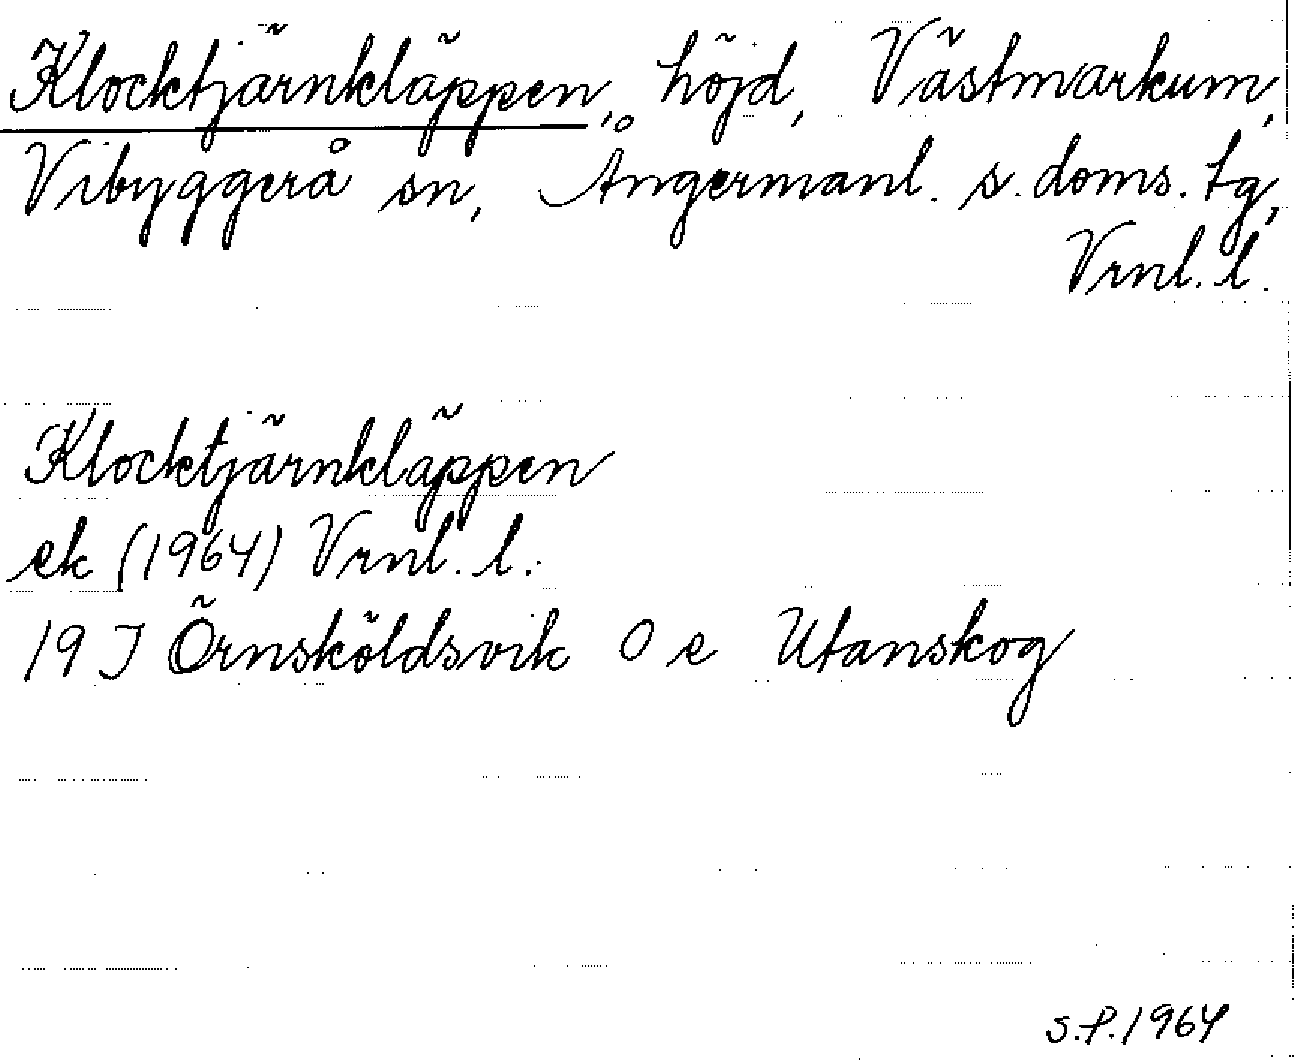 Klocktjärnkläppen, höjd, Västmarkum,
Vibyggerå sn, Ångermanl. s. doms. tg,
Vrnl. l.
Klocktjärnkläppen
ek (1964) Vrnl. l.
19 J Örnsköldsvik O e Utanskog
S.P. 1964